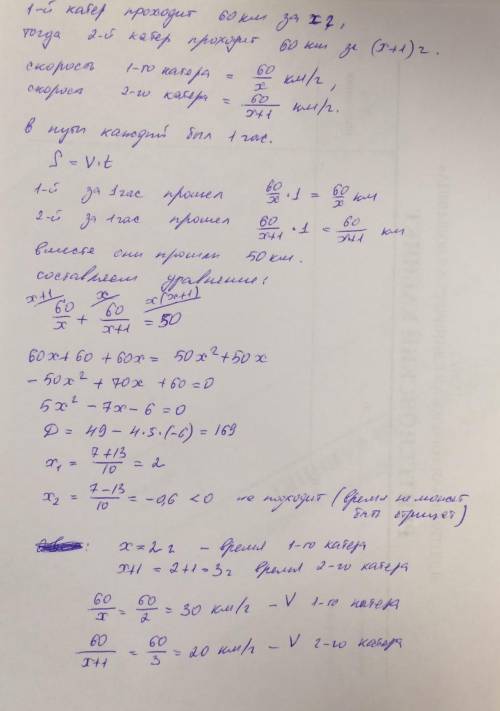 1-й катер проходит 60 км за x ч,
тогда 2-й катер проходит 60 км за (x+1) ч.
скорость 1-го катера = 60/x км/ч,
скорость 2-го катера = 60/x+1 км/ч.
в пути каждый был 1 час.
S = V·t
1-й за 1 час прошел 60/x · 1 = 60/x км
2-й за 1 час прошел 60/x+1 · 1 = 60/x+1 км
вместе они прошли 50 км.
составляем уравнение:
x+1 x x(x+1)
60/x + 60/x+1 = 50
60x+60+60x = 50x²+50x
-50x²+70x+60=0
5x²-7x-6=0
D = 49-4·5·(-6) = 169
x₁ = 7+13/10 = 2
x₂ = 7-13/10 = -0,6 <0 не подходит (время не может
быть отрицат)
: x=2 ч - время 1-го катера
x+1=2+1=3ч время 2-го катера
60/x = 60/2 = 30 км/г - V 1-го катера
60/x+1 = 60/3 = 20 км/г - V 2-го катера